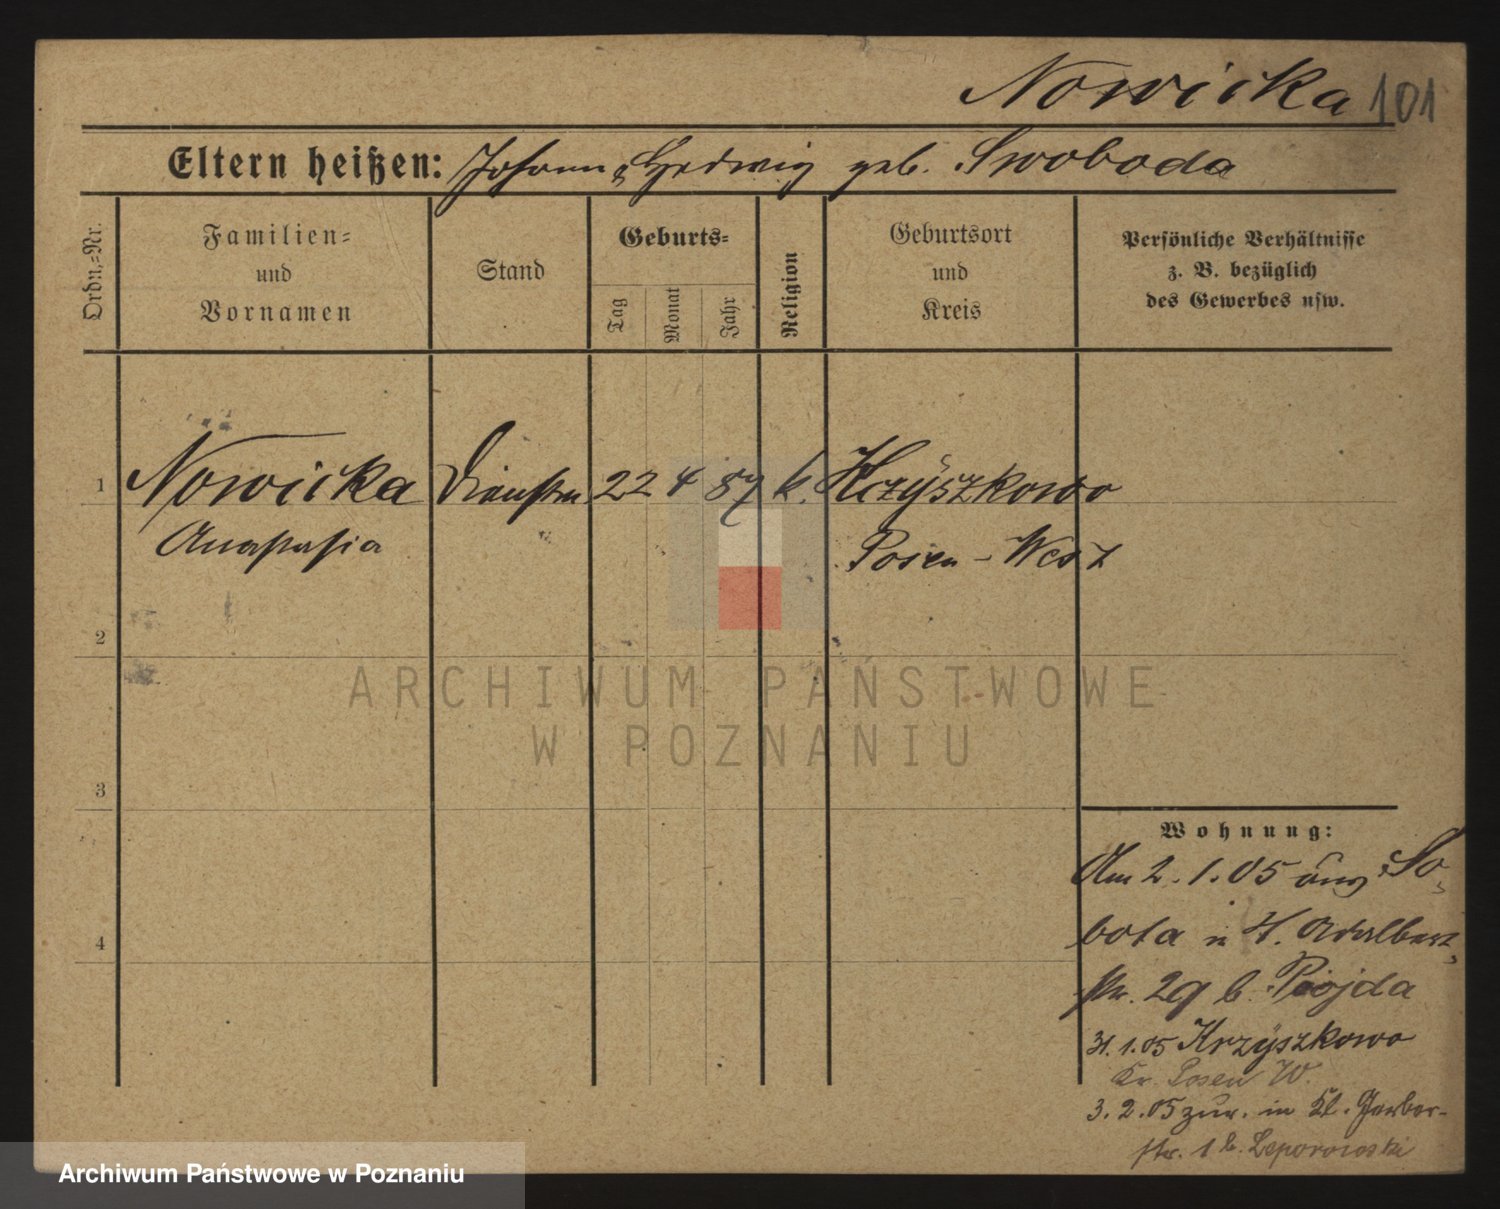 Nowicka 101
Eltern heißen: Johann & Hedwig geb. Swoboda
Ordn.-Nr.
Familien-
und
Vornamen
Stand
Geburts-
Tag
Monat
Jahr
Religion
Geburtsort
und
Kreis
Persönliche Verhältnisse
z. B. bezüglich
des Gewerbes usw.
1 Nowicka Dienstm. 22 4 87 k. Krzyszkowo
Anastasia Posen-West
2
ARCHIWUM PAŃSTWOWE
W POZNANIU
3
Wohnung:
Am 2.1.05 aus So
bota in H. Adalbert
str. 29 b. Pojda
31.1.05 Krzyszkowo
Kr. Posen W.
3.2.05 zur. in Kl. Gerber-
str. 1 b. Leporowski
4
Archiwum Państwowe w Poznaniu